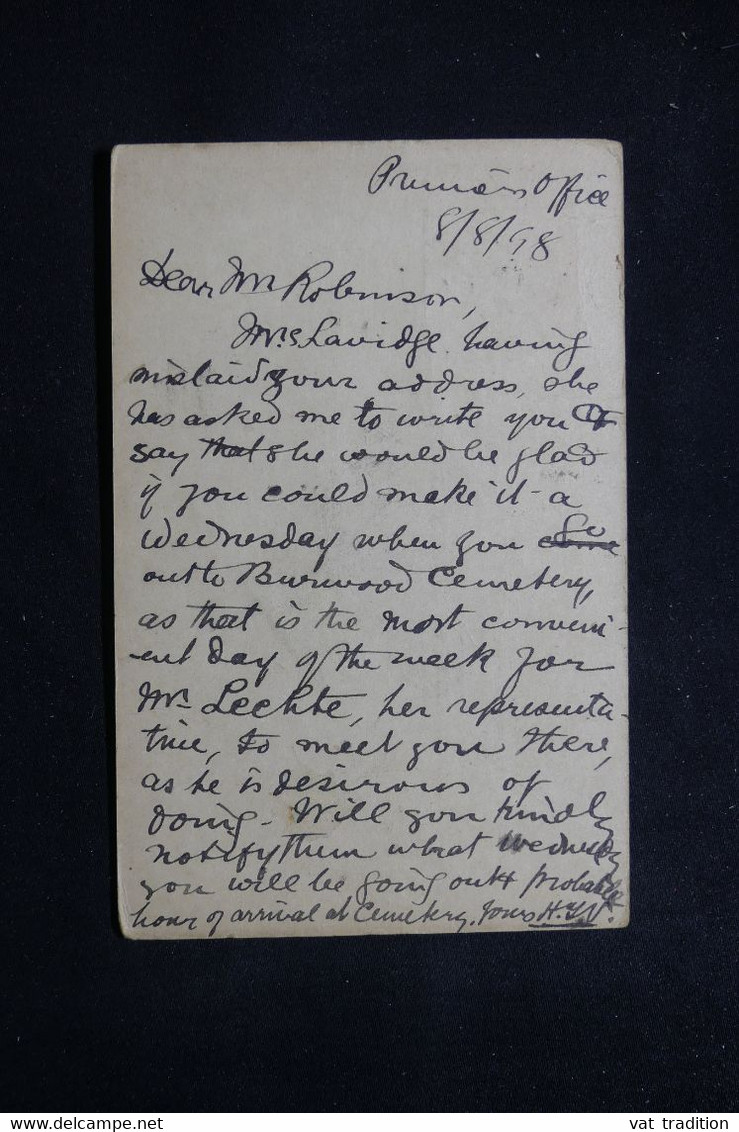 Premier's Office
8/8/98
Dear Mr Robinson,
Mrs. Lavidge having
mislaid your address, she
has asked me to write you &
say that she would be glad
if you could make it a
Wednesday when you come go
out to Burwood Cemetery,
as that is the most conveni-
-ent day of the week for
Mr. Lechte, her representa-
tive, to meet you there,
as he is desirous of
doing - Will you kindly
notify them what Wednesday
you will be going out & probable
hour of arrival at Cemetery. Yours
vat tradition
www.delcampe.net